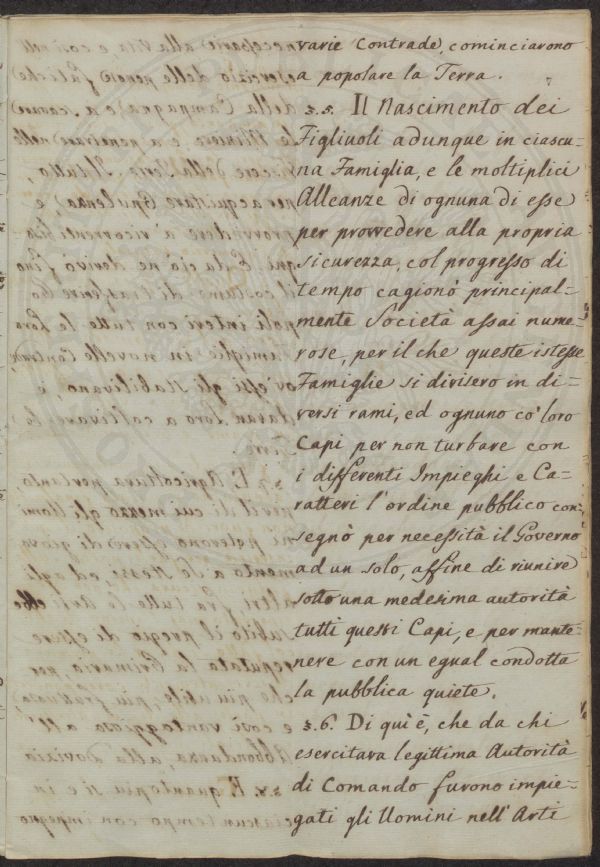 varie Contrade, cominciarono
a popolare la Terra.
§.5. Il Nascimento dei
Figliuoli adunque in ciascu-
na Famiglia, e le moltiplici
Alleanze di ognuna di esse
per provvedere alla propria
sicurezza, col progresso di
tempo cagionò principal-
mente Società assai nume-
rose, per il che queste istesse
Famiglie si divisero in di-
versi rami, ed ognuno co' loro
Capi per non turbare con
i differenti Impieghi e Ca-
ratteri l'ordine pubblico con-
segnò per necessità il Governo
ad un solo, affine di riunire
sotto una medesima autorità
tutti questi Capi, e per mante-
nere con un egual condotta
la pubblica quiete.
§.6. Di quì è, che da chi
esercitava legittima Autorità
di Comando furono impie-
gati gli Uomini nell'Arti